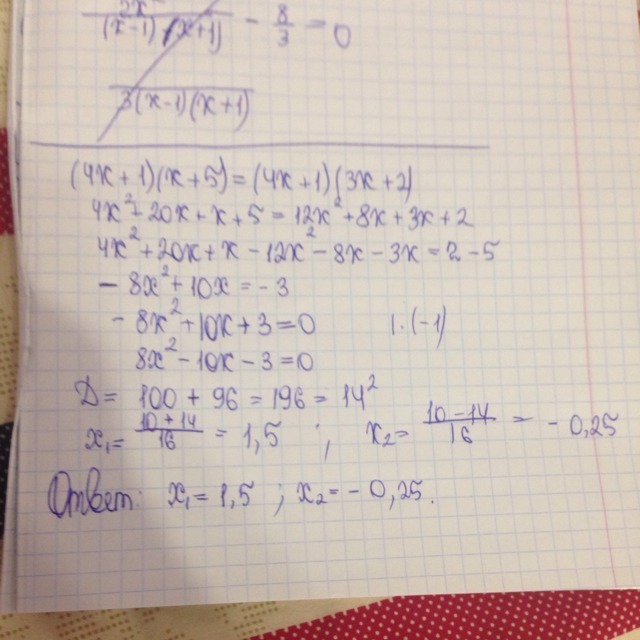 (x-1)(x+1) - 8/3 = 0
3(x-1)(x+1)
(4x+1)(x+5)=(4x+1)(3x+2)
4x²+20x+x+5=12x²+8x+3x+2
4x²+20x+x-12x²-8x-3x=2-5
-8x²+10x=-3
-8x²+10x+3=0 |·(-1)
8x²-10x-3=0
D= 100+96=196=14²
x₁= (10+14)/16 = 1,5 ; x₂= (10-14)/16 = -0,25
Ответ: x₁=1,5 ; x₂=-0,25.